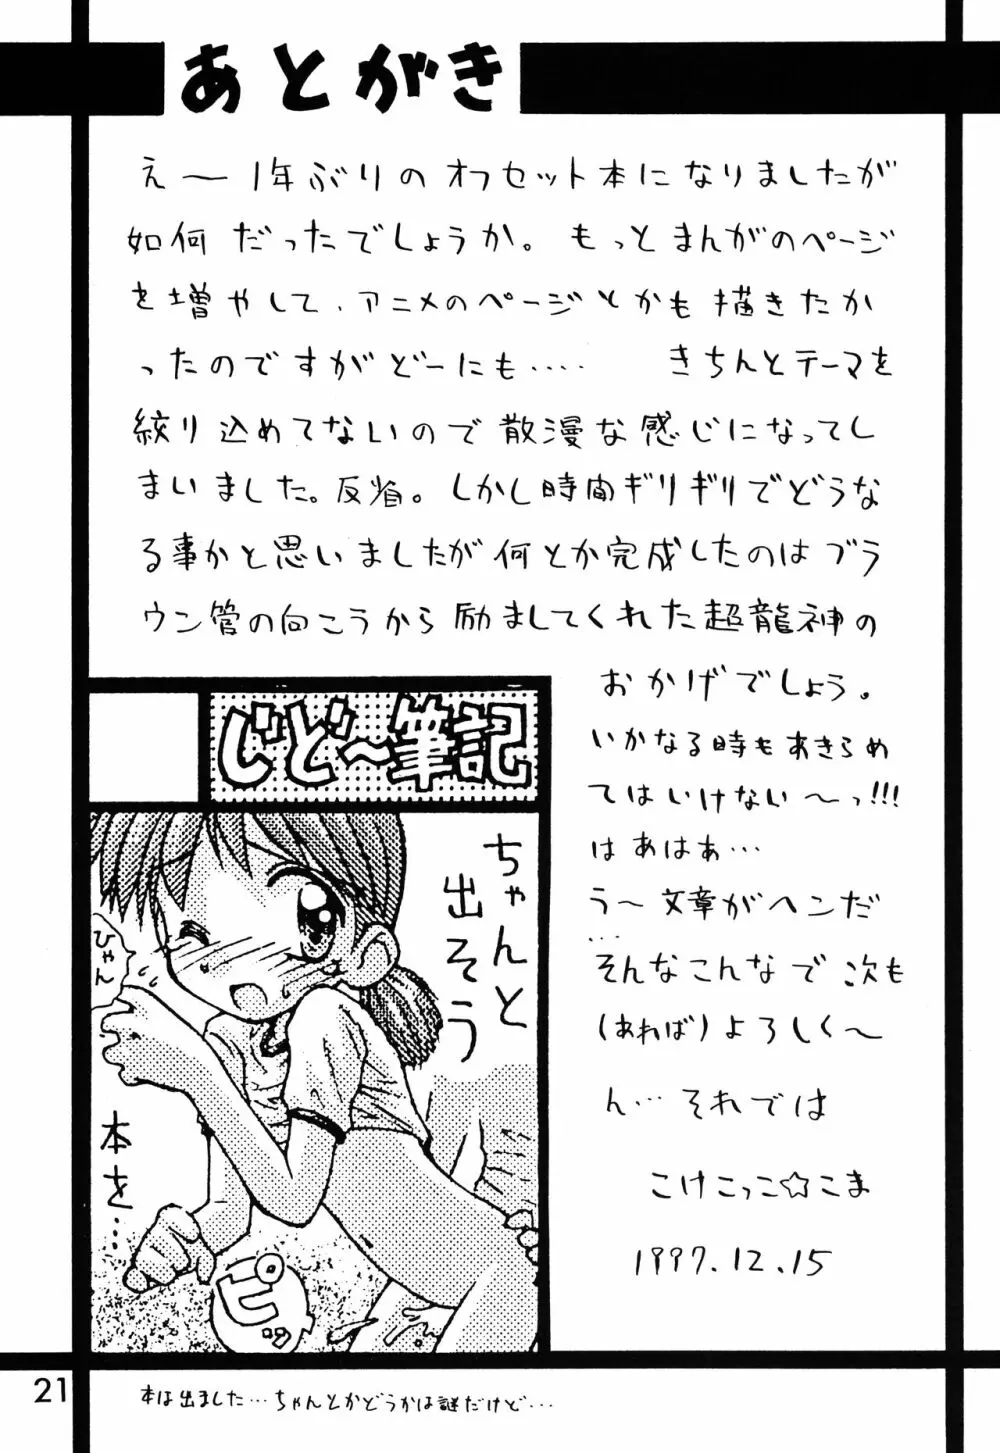 あとがき
え〜1年ぶりのオフセット本になりましたが
如何だったでしょうか。もっとまんがのページ
を増やして、アニメのページとかも描きたか
ったのですがどーにも‥‥　きちんとテーマを
絞り込めてないので散漫な感じになってし
まいました。反省。しかし時間ギリギリでどうな
る事かと思いましたが何とか完成したのはブラ
ウン管の向こうから励ましてくれた超龍神の
おかげでしょう。
いかなる時もあきらめ
てはいけない〜っ!!!
はあはぁ…
う〜文章がヘンだ
…
そんなこんなで次も
(あれば)よろしく〜
ん…それでは
こけこっこ☆こま
1997.12.15
じど〜筆記
ちゃんと
出そう
本を…
ひゃん
ピッ
本は出ました…ちゃんとかどうかは謎だけど…
21